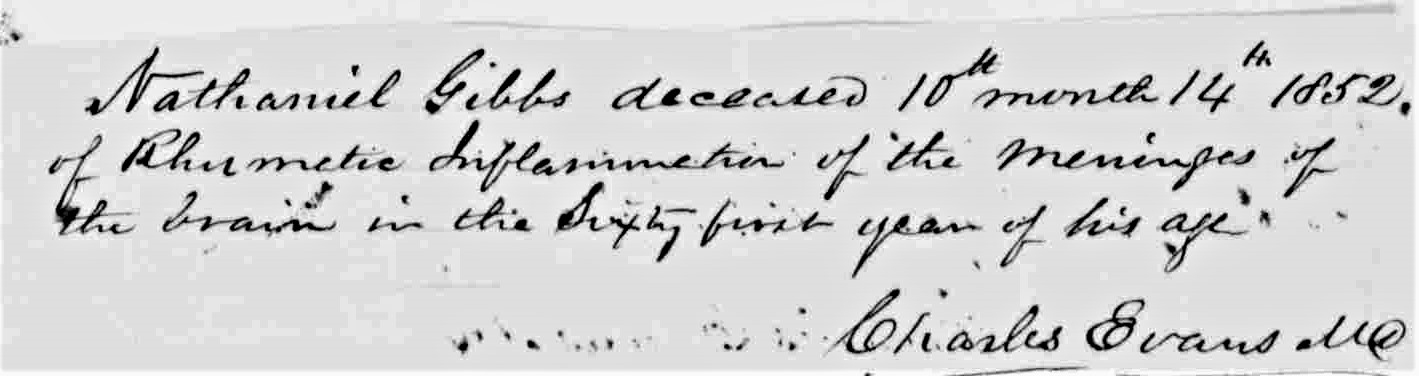 Nathaniel Gibbs deceased 10th month 14th 1852.
of Rhumetic Inflammetion of the Meninges of
the brain in the Sixty first year of his age
Charles Evans MD